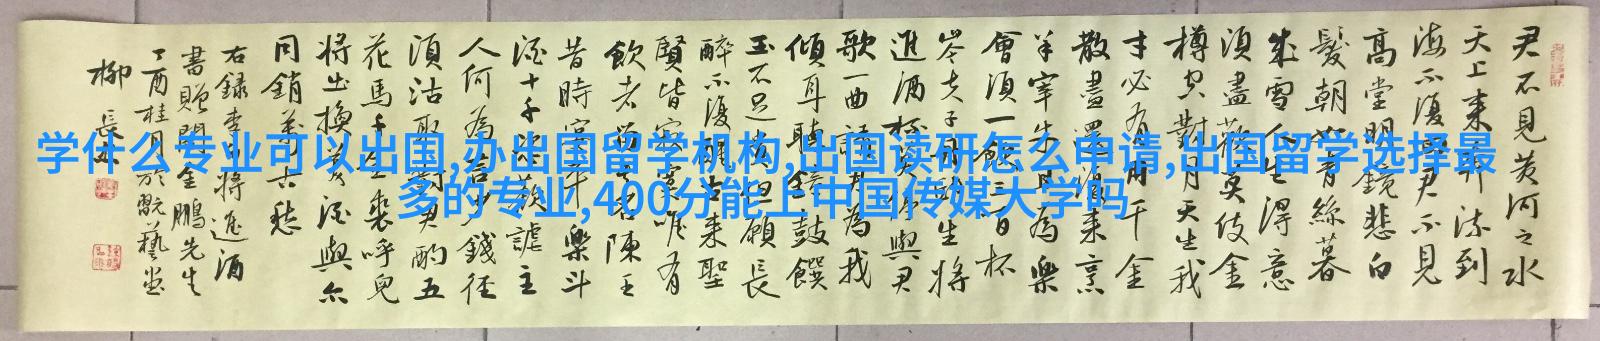 君不見黃河之水
天上来奔流到
海不復回君不見
高堂明鏡悲白
髮朝如青絲暮
成雪人生得意
須盡歡莫使金
樽空對月天生我
材必有用千金
散盡還復来烹
羊宰牛且為樂
會須一飲三百杯
岑夫子丹邱生將
進酒杯莫停與君
歌一曲請君為我
傾耳聽鐘鼓饌
玉不足貴但願長
醉不復醒古来聖
賢皆寂寞唯有
飲者留其名陳王
昔時宴平樂斗
酒十千恣歡謔主
人何為言少錢徑
須沽取對君酌五
花馬千金裘呼兒
將出換美酒與尔
同銷萬古愁
右録李白將進酒
書贈開金鵬先生
丁酉桂月於翫藝堂
柳長
学什么专业可以出国,办出国留学机构,出国读研怎么申请,出国留学选择最
多的专业,400分能上中国传媒大学吗